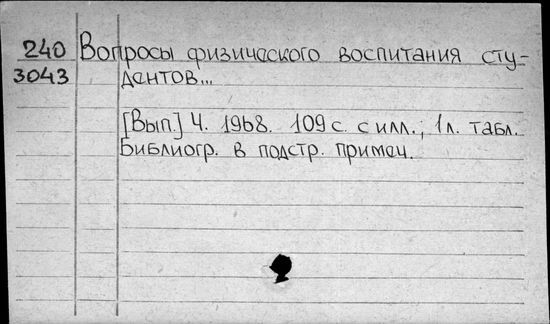 240 Вопросы физического воспитания сту-
3043 дентов...
[Вып.] 4. 1968. 109 с. с илл.; 1 л. табл.
Библиогр. в подстр. примеч.